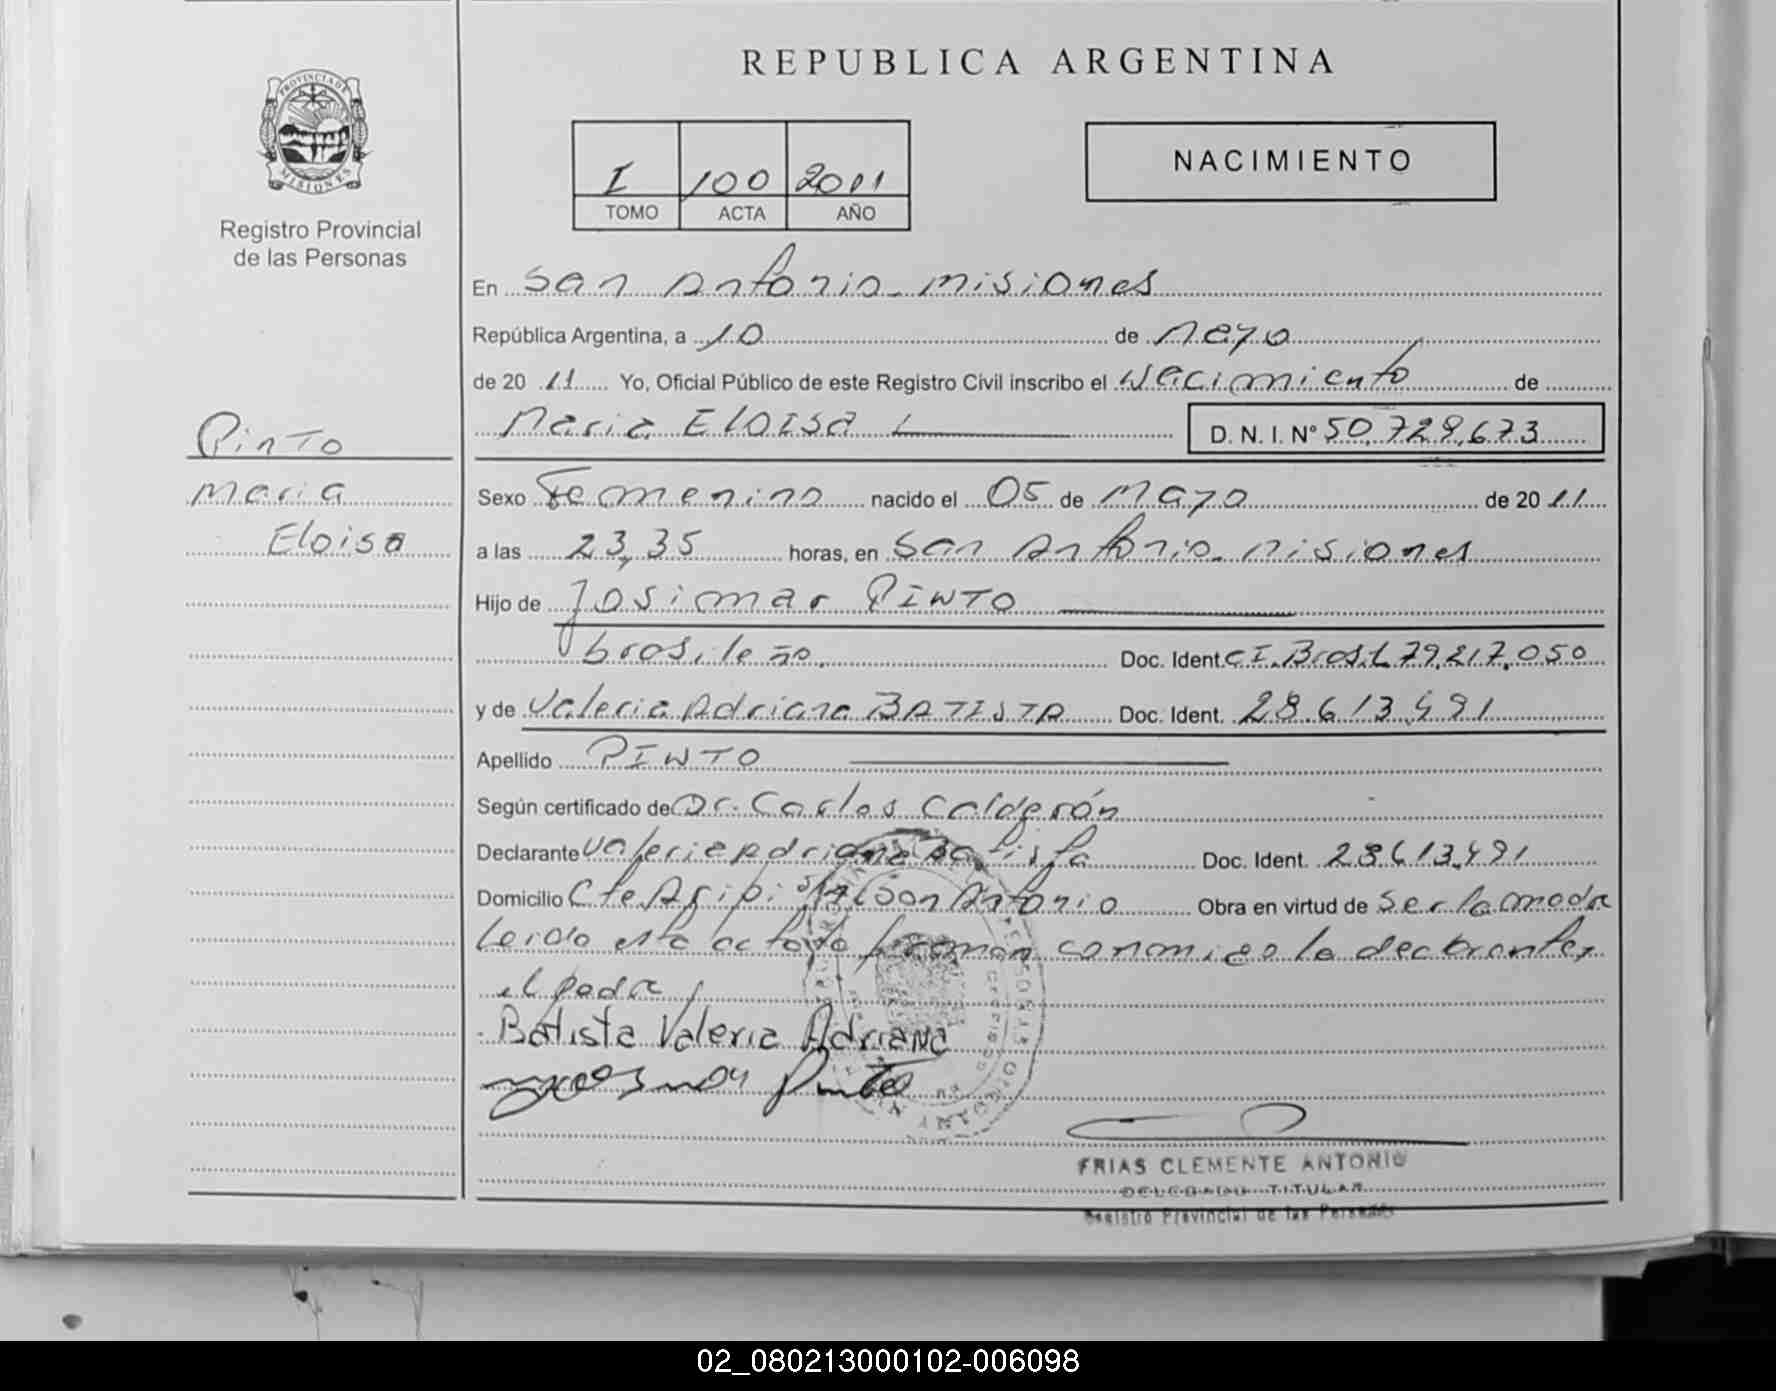 REPUBLICA ARGENTINA
PROVINCIA DE
MISIONES
Registro Provincial
de las Personas
I 100 2011
TOMO ACTA AÑO
NACIMIENTO
En San Antonio - Misiones
República Argentina, a 10 de Mayo
de 20 11 Yo, Oficial Público de este Registro Civil inscribo el Nacimiento de
Maria ELOISA D. N. I. Nº 50.729.673
Pinto
Maria
Eloisa
Sexo Femenino nacido el 05 de Mayo de 20 11
a las 23,35 horas, en San Antonio - Misiones
Hijo de Josimar PINTO
brasileño. Doc. Ident. CI. Brasil 79.217.050
y de Valeria Adriana BATISTA Doc. Ident. 28.613.491
Apellido PINTO
Según certificado de Dr. Carlos Calderón
Declarante Valeria Adriana Batista Doc. Ident. 28613.491
Domicilio Cte Asipi San Antonio Obra en virtud de ser la madre
Leida esta acta la firman conmigo la declarante y
el padre
Batista Valeria Adriana
Pinto
FRIAS CLEMENTE ANTONIO
DELEGADO TITULAR
Registro Provincial de las Personas
02_080213000102-006098